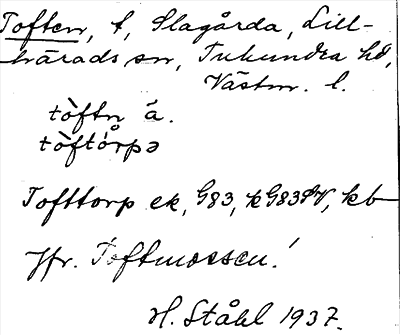 Toften, t, Slagårda, Lill-
härads sn, Tuhundra hd,
Västm. l.
tòftn ä.
tòftórpə
Tofttorp ek, G83, kG83SV, kb
Jfr. Toftmossen!
H. Ståhl 1937.